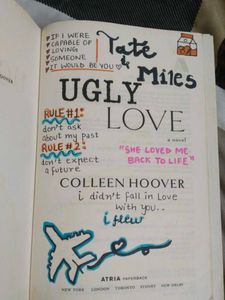 HOOVER
IF I WERE
CAPABLE OF
LOVING
SOMEONE
IT WOULD BE YOU
Tate
&
Miles
UGLY
LOVE
a novel
RULE #1:
don't ask
about my past
RULE #2:
don't expect
a future
"SHE LOVED ME
BACK TO LIFE"
COLLEEN HOOVER
i didn't fall in love
with you..
i flew
ATRIA PAPERBACK
NEW YORK LONDON TORONTO SYDNEY NEW DELHI